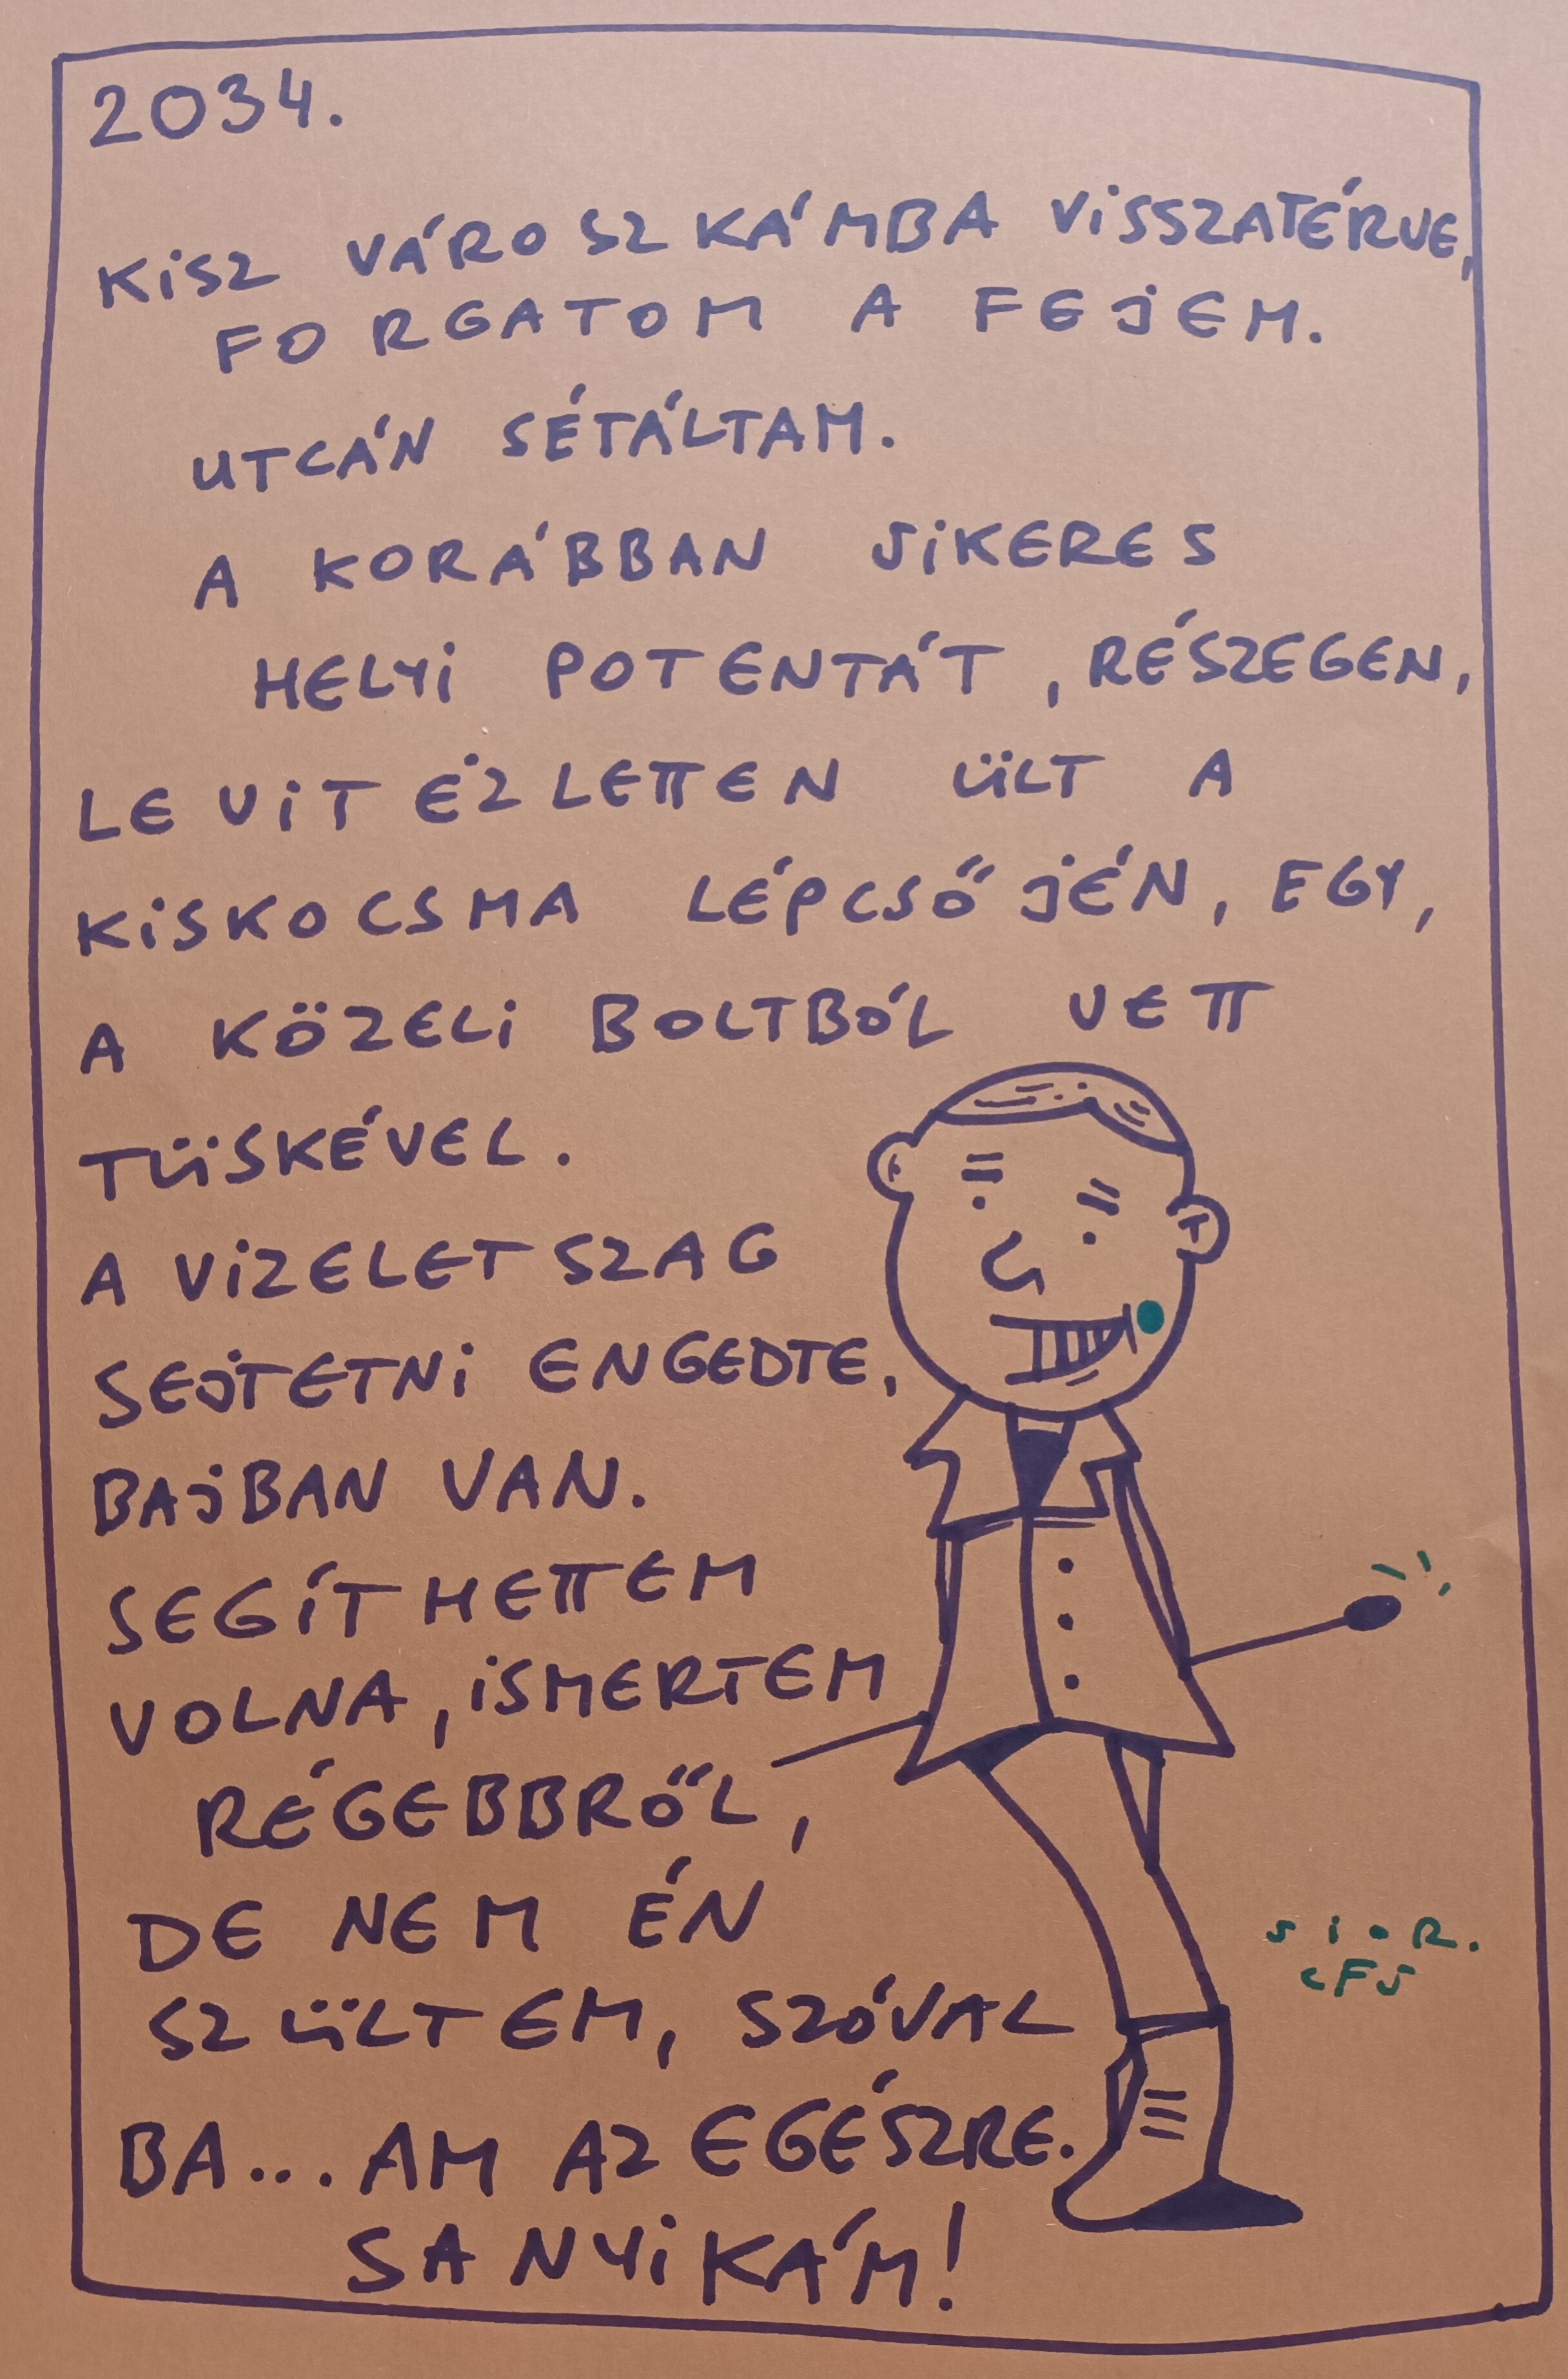 2034.
KISZ VÁROSZKÁMBA VISSZATÉRVE,
FORGATOM A FEJEM.
UTCÁN SÉTÁLTAM.
A KORÁBBAN SIKERES
HELYI POTENTÁT, RÉSZEGEN,
LEVITÉZLETTEN ÜLT A
KISKOCSMA LÉPCSŐJÉN, EGY,
A KÖZELI BOLTBÓL VETT
TÜSKÉVEL.
A VIZELETSZAG
SEJTETNI ENGEDTE,
BAJBAN VAN.
SEGÍTHETTEM
VOLNA, ISMERTEM
RÉGEBBRŐL,
DE NEM ÉN
SZÜLTEM, SZÓVAL
BA... AM AZ EGÉSZRE.
SANYIKÁM!